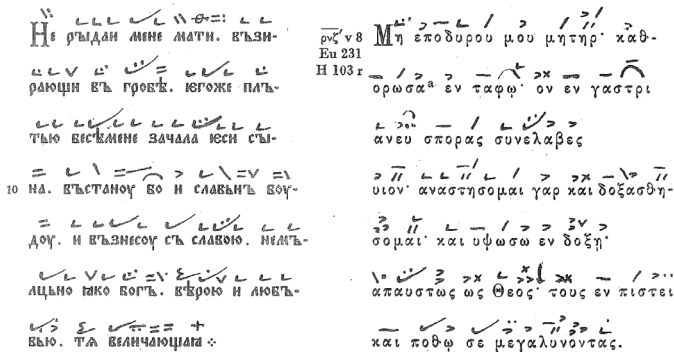 Не рꙑдаи мене мати. възи-
рающи въ гробѣ. ѥгоже плъ-
тью бесѣмене зачала ѥси сꙑ-
10 на. въстаноу бо и славьнъ боу-
доу. и възнесоу съ славою. немъ-
лцьно ꙗко богъ. вѣрою и любъ-
вью. тѧ величающаꙗ ⁘
ρνζ′ v 8
Eu 231
H 103 r
Μη εποδυρου μου μητηρ· καθ-
ορωσαᵃ εν ταφῳ· ον εν γαστρι
ανευ σπορας συνελαβες
υιον· αναστησομαι γαρ και δοξασθη-
σομαι· και υψωσω εν δοξῃ·
απαυστως ως Θεος· τους εν πιστει
και ποθῳ σε μεγαλυνοντας.